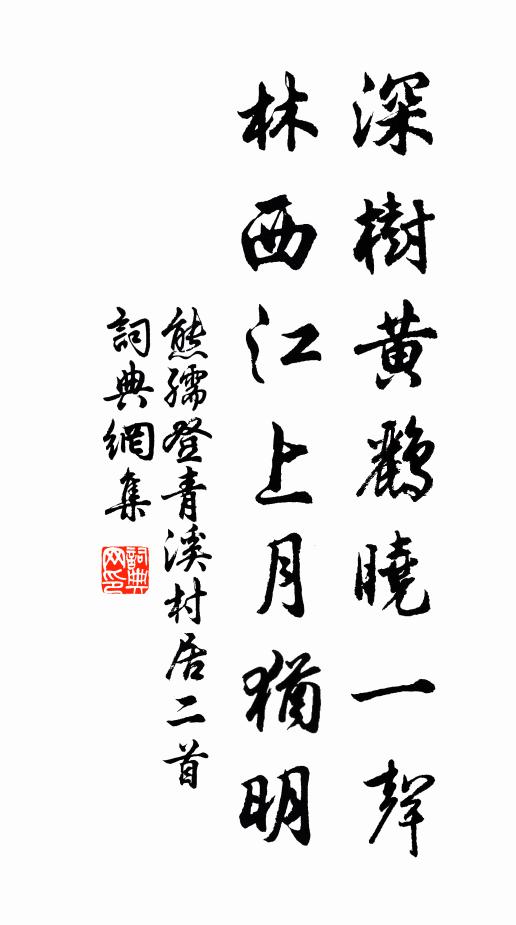 深樹黃鸝曉一聲
林西江上月猶明
熊孺登青溪村居二首
詞典網集
詞典
网印